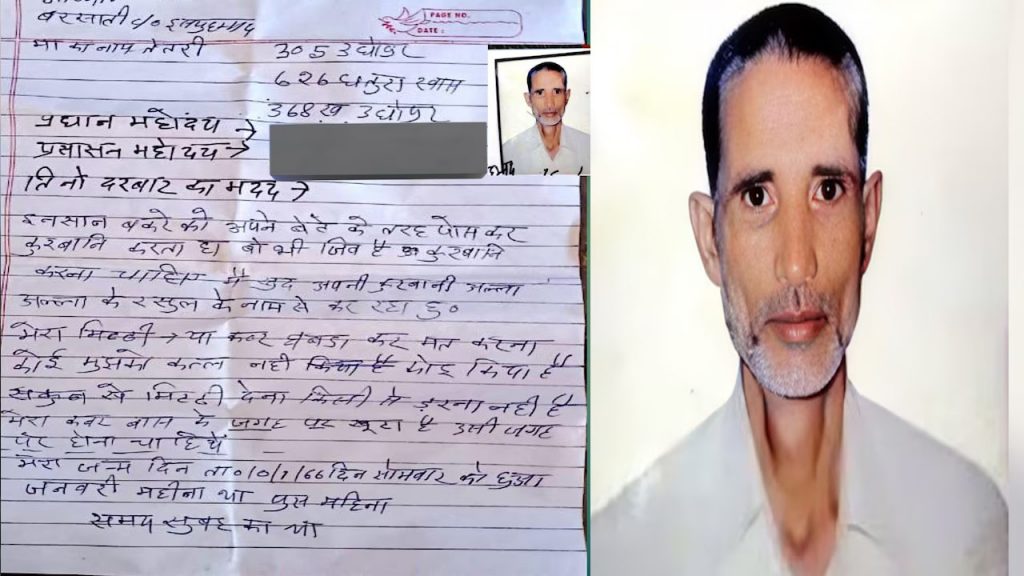 बरसाती c/o
PAGE NO.
DATE :
मा का नाप तेतरी
305 उधोपुर
626 धतुरा खाम
368 ख उधोपुर
प्रधान महोदय →
प्रसासन महोदय →
तिनो दरबार का मदद →
इनसान बकरे को अपने बेटे के तरह पोस कर
कुरबानि करता है। वो भी जिव है कुरबानि
करना चाहिए मै खुद अपनी कुरबानी अल्ला
अल्ला के रसुल के नाम से कर रहा हु०
मेरा मिटटी → या कबर घबड़ा कर मत करना
कोई मुझको कत्ल नही किया है कोइ किया है
सकुन से मिटटी देना किसी से डरना नही है
मेरा कबर बास के जगह पर खूटा है उसी जगह
पर होना चाहिये
मेरा जन्म दिन ता० /0/1/66 दिन सोमवार को हुआ
जनवरी महीना था पुस महिना
समय सुबह का था